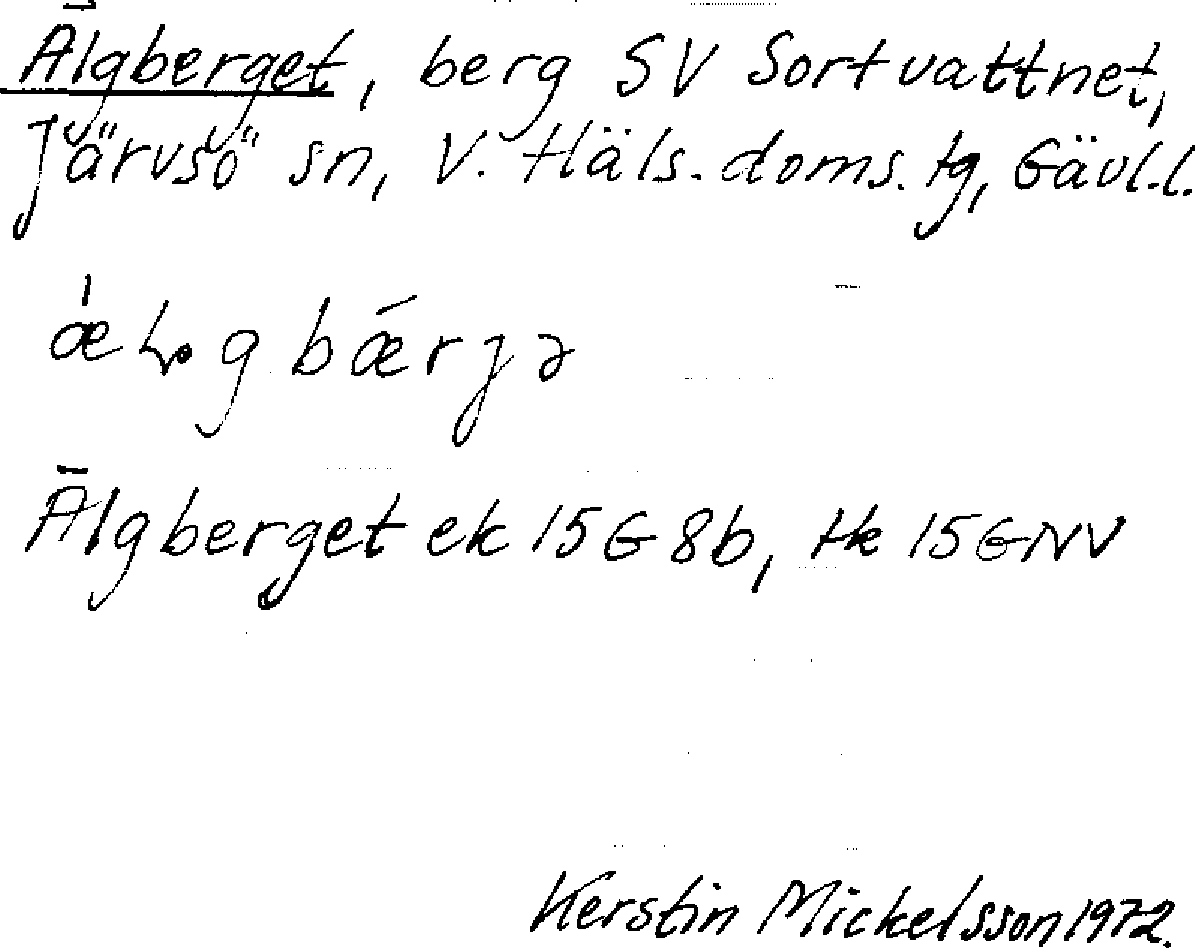 Älgberget, berg SV Sortvattnet,
Järvsö sn, V. Häls. doms. tg, Gävl.l.
Älgberget ek 15G8b, tk 15GNV
Kerstin Mickelsson 1972.